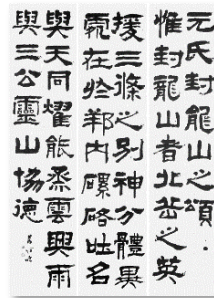 元氏封龍山之頌
惟封龍山者北岳之英
援三條之別神分體異
處在於邦內磥硌吐名
與天同燿能烝雲興雨
與三公靈山協德